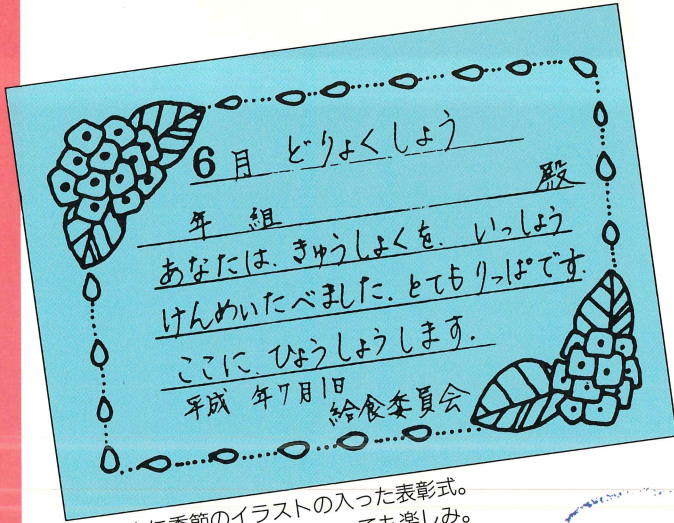 6月 どりょくしょう
年 組 殿
あなたは、きゅうしょくを、いっしょう
けんめいたべました。とてもりっぱです。
ここに、ひょうしょうします。
平成 年7月1日
給食委員会
季節のイラストの入った表彰式。
ても楽しみ。